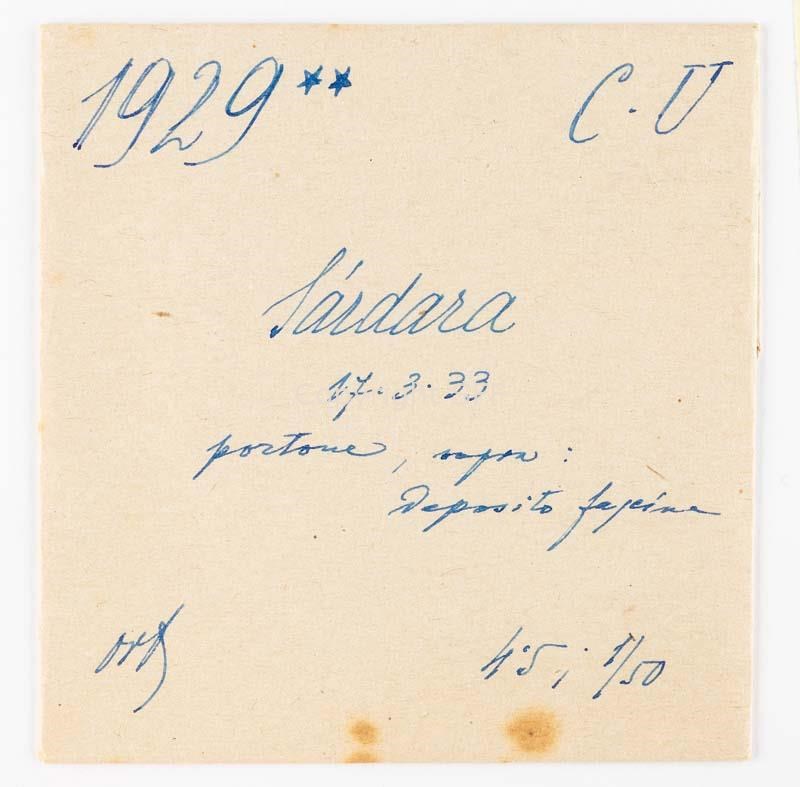 1929** C. U
Sárdara
17. 3. 33
portone, sopra:
Deposito fascine
ort
4.5; 1/50